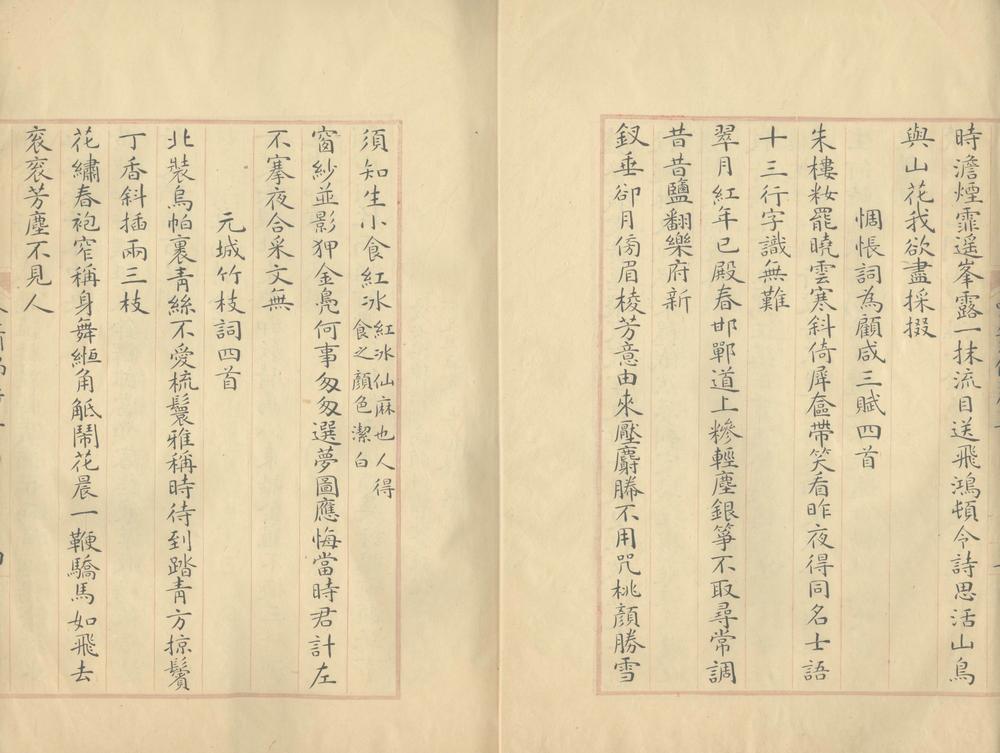 時澹煙霏遥峯露一抹流目送飛鴻頓令詩思活山鳥
與山花我欲盡採掇
惆悵詞為顧咸三賦四首
朱樓籹罷曉雲寒斜倚犀奩帶笑看昨夜得同名士語
十三行字識無難
翠月紅年已殿春邯鄲道上糝輕塵銀箏不取尋常調
昔昔鹽翻樂府新
釵垂卻月傍眉棱芳意由來壓麝勝不用咒桃顏勝雪
須知生小食紅冰紅冰仙麻也人得食之顏色潔白
窗紗並影狎金鳧何事匆匆選夢圖應悔當時君計左
不搴夜合采文無
元城竹枝詞四首
北裝烏帕裏青絲不愛梳鬟雅稱時待到踏青方掠鬢
丁香斜插兩三枝
花繡春袍窄稱身舞緪角觝鬧花晨一鞭驕馬如飛去
衮衮芳塵不見人